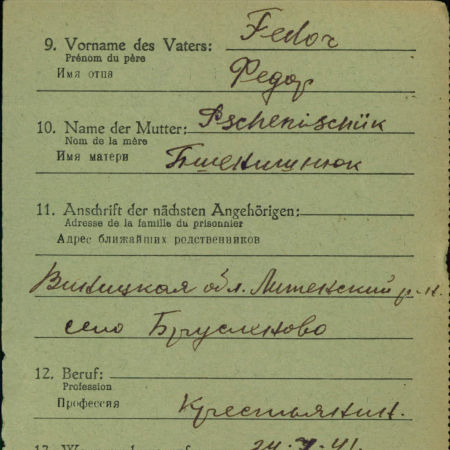 Fedor
9. Vorname des Vaters:
Prénom du père
Имя отца
Федор
10. Name der Mutter: Pschenischük
Nom de la mère
Имя матери Бшенишнюк
11. Anschrift der nächsten Angehörigen:
Adresse de la famille du prisonnier
Адрес ближайших родственников
Виницкая обл. Литенский р-н.
село Бруслеково
12. Beruf:
Profession
Профессия Крестьянин.
24.7.41.